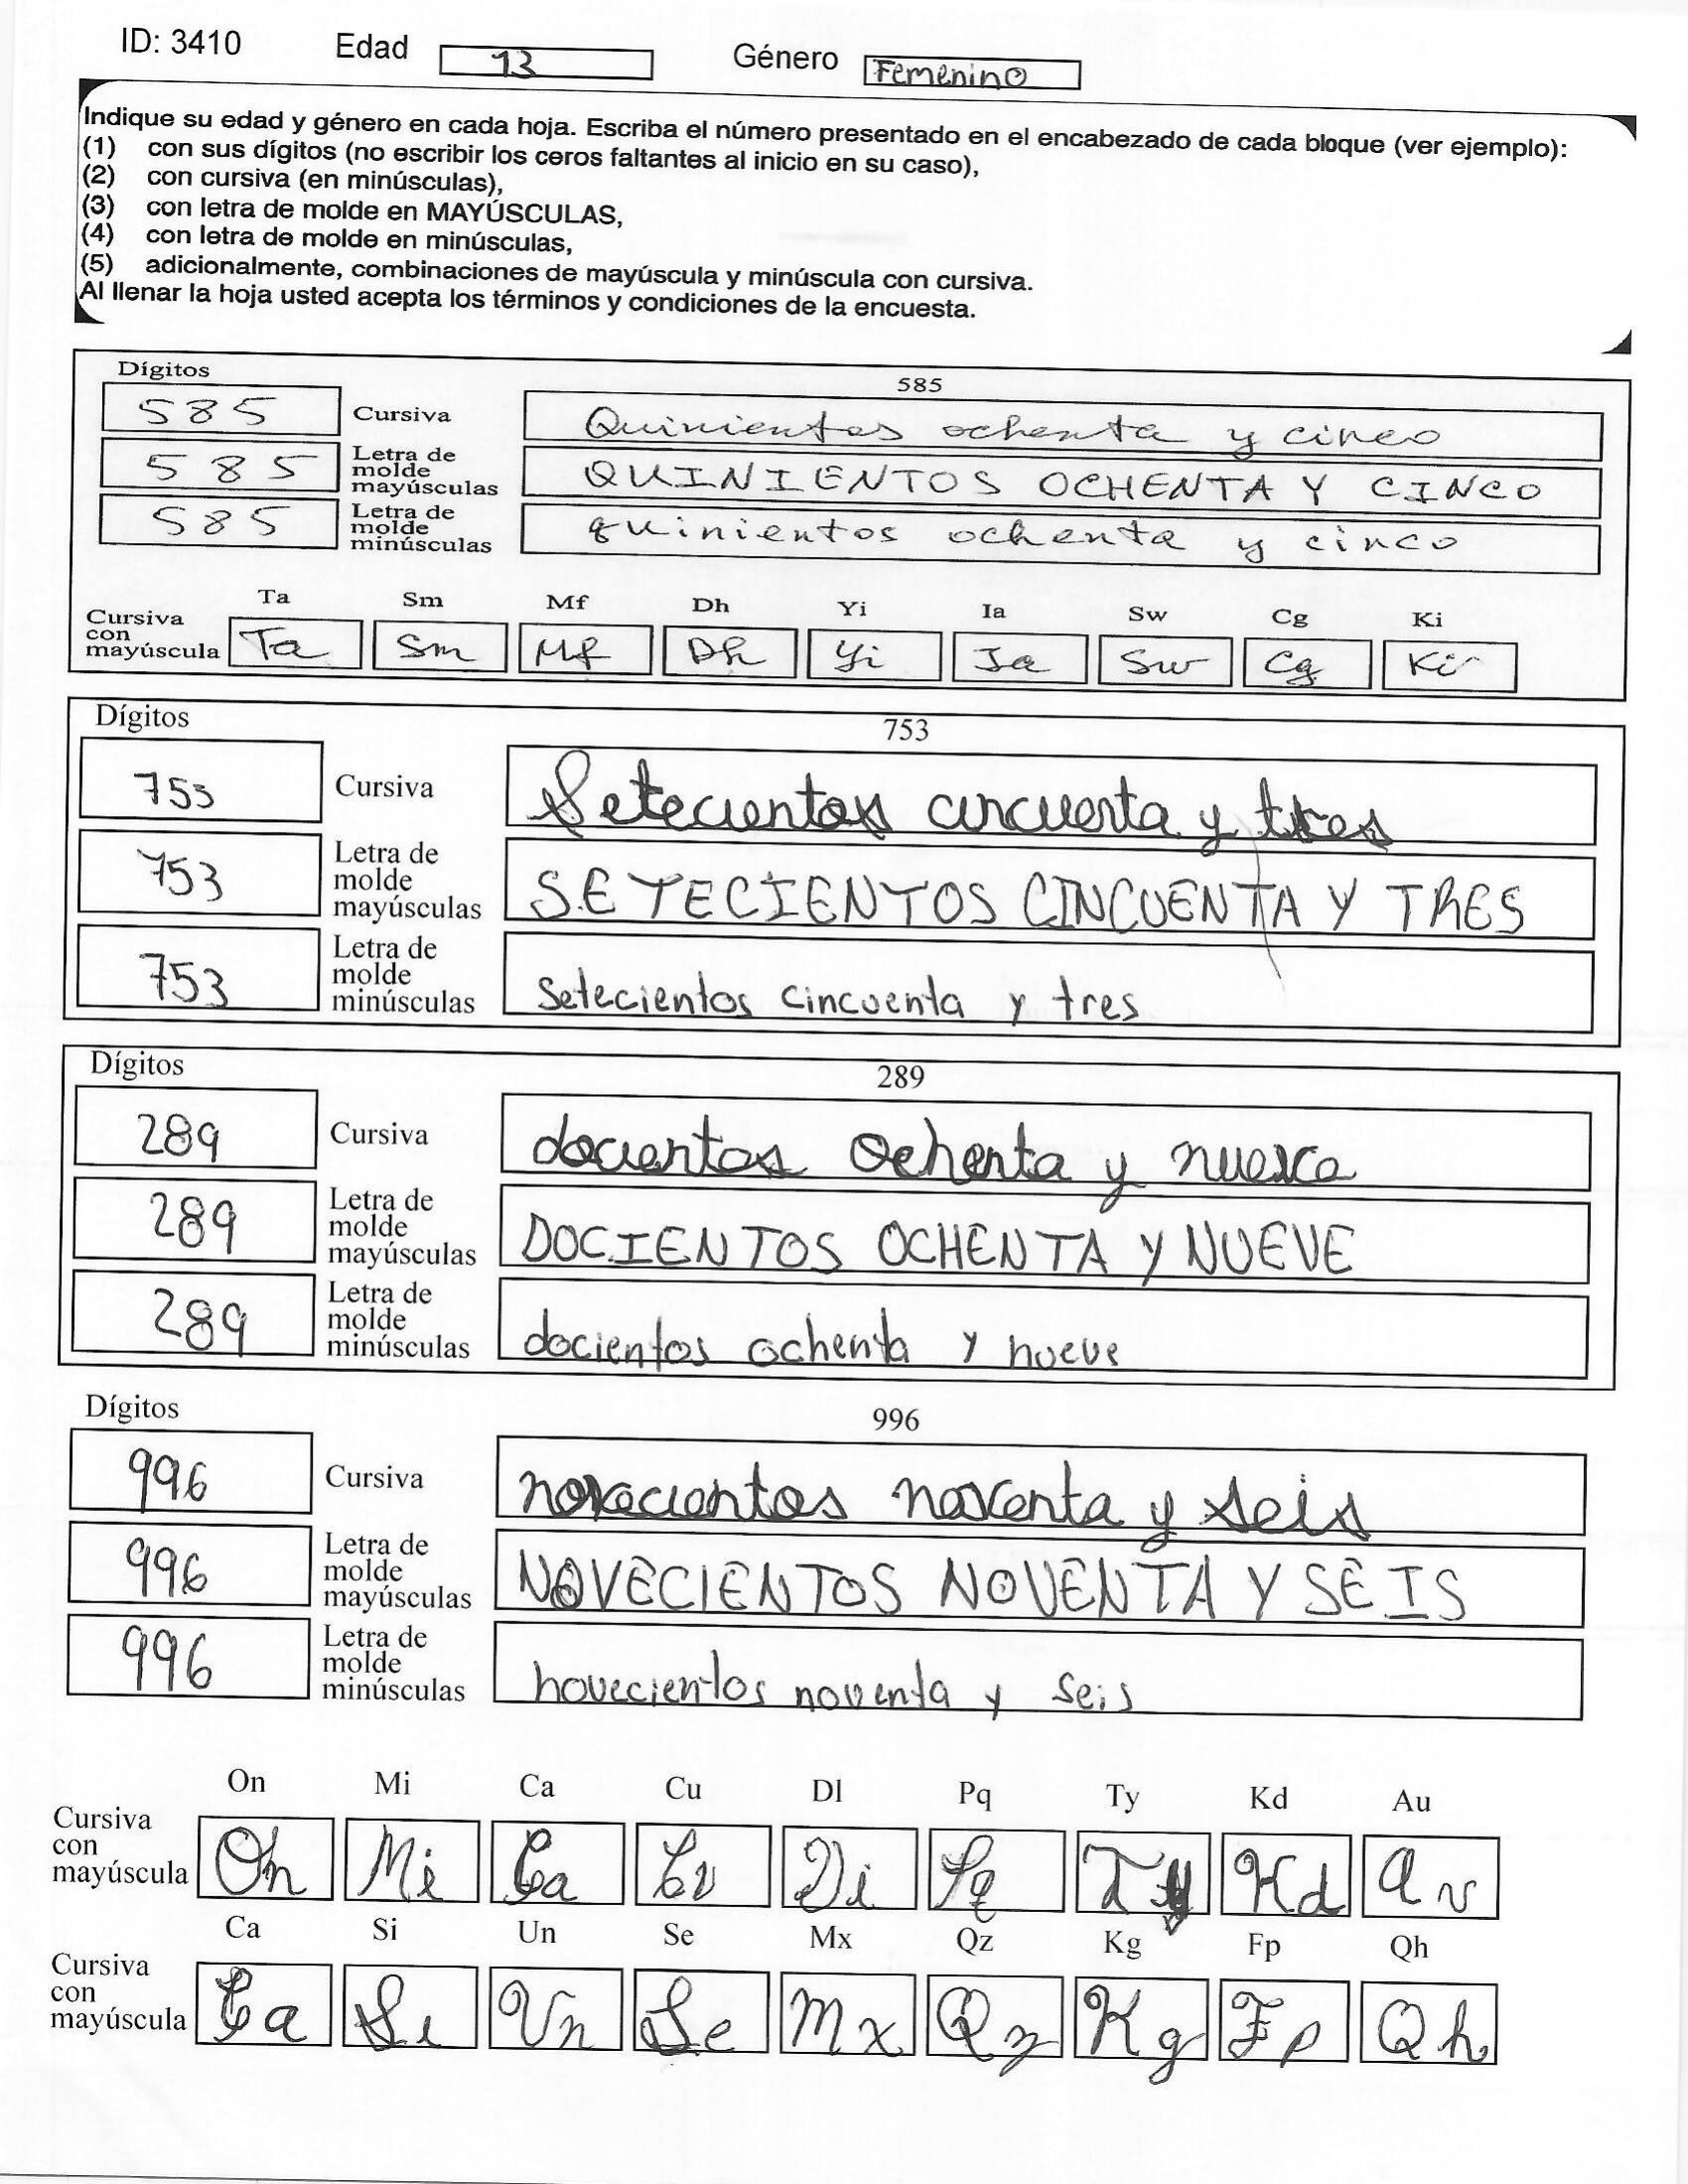 ID: 3410 Edad 13 Género Femenino
Indique su edad y género en cada hoja. Escriba el número presentado en el encabezado de cada bloque (ver ejemplo):
(1) con sus dígitos (no escribir los ceros faltantes al inicio en su caso),
(2) con cursiva (en minúsculas),
(3) con letra de molde en MAYÚSCULAS,
(4) con letra de molde en minúsculas,
(5) adicionalmente, combinaciones de mayúscula y minúscula con cursiva.
Al llenar la hoja usted acepta los términos y condiciones de la encuesta.
Dígitos 585
585 Cursiva Quinientos ochenta y cinco
585 Letra de molde mayúsculas QUINIENTOS OCHENTA Y CINCO
585 Letra de molde minúsculas quinientos ochenta y cinco
Ta Sm Mf Dh Yi Ia Sw Cg Ki
Cursiva con mayúscula Ta Sm Mf Dh Yi Ia Sw Cg Ki
Dígitos 753
753 Cursiva Setecientos cincuenta y tres
753 Letra de molde mayúsculas SETECIENTOS CINCUENTA Y TRES
753 Letra de molde minúsculas setecientos cincuenta y tres
Dígitos 289
289 Cursiva docientos ochenta y nueve
289 Letra de molde mayúsculas DOCIENTOS OCHENTA Y NUEVE
289 Letra de molde minúsculas docientos ochenta y nueve
Dígitos 996
996 Cursiva novecientos noventa y seis
996 Letra de molde mayúsculas NOVECIENTOS NOVENTA Y SEIS
996 Letra de molde minúsculas novecientos noventa y seis
On Mi Ca Cu Dl Pq Ty Kd Au
Cursiva con mayúscula On Mi Ca Cu Di Pq Ty Kd Au
Ca Si Un Se Mx Qz Kg Fp Qh
Cursiva con mayúscula Ca Si Un Se Mx Qz Kg Fp Qh